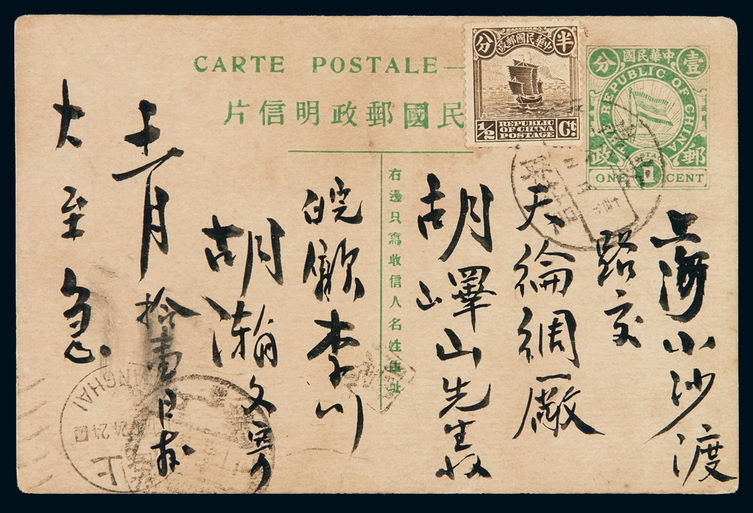 CARTE POSTALE
民國郵政明信片
中華民國郵政
半
分
1/2
Ct
REPUBLIC
OF CHINA
POSTAGE
中華民國
壹
分
THE REPUBLIC OF CHINA
郵
政
ONE CENT
右邊只寫收信人名姓住址
上海小沙渡
路交
天綸綢廠
胡墿山先生收
皖歙李川
胡瀚文寄
十一月拾壹日
大至急
上